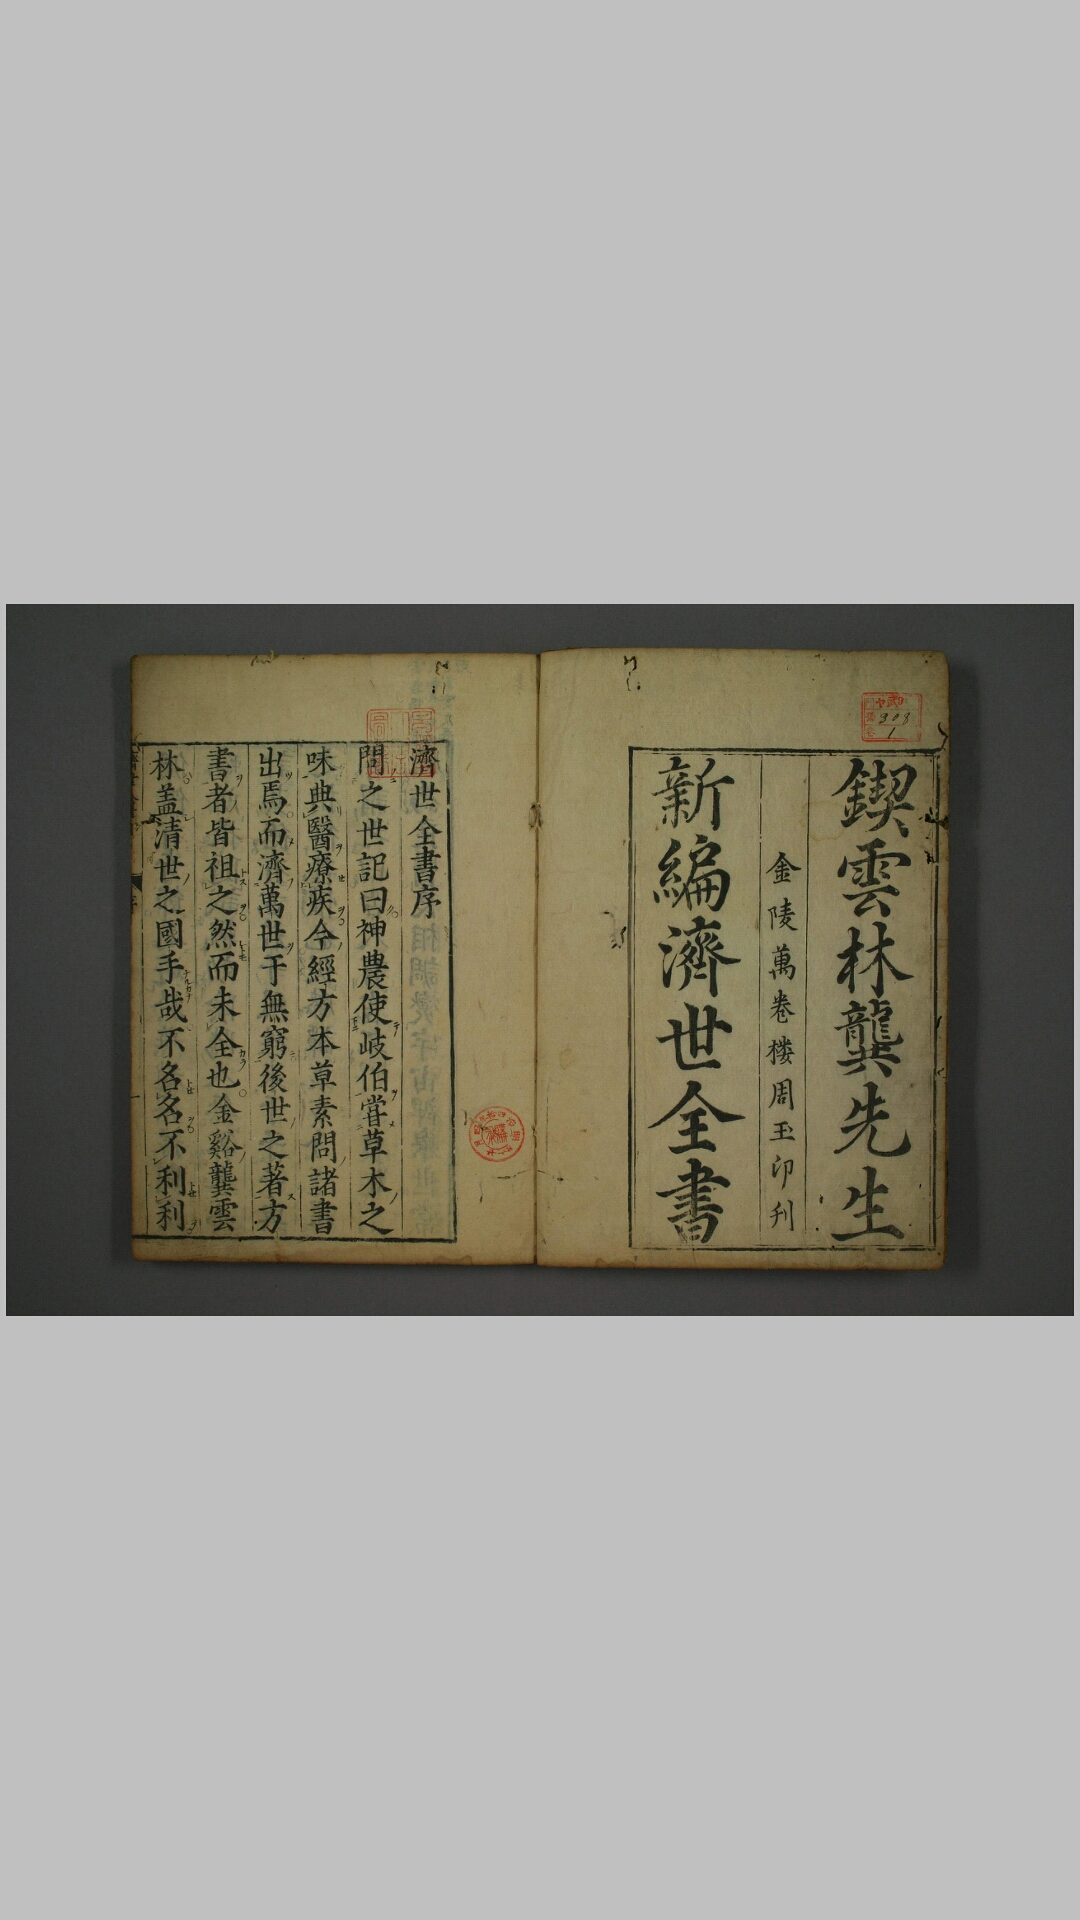 鍥雲林龔先生
金陵萬卷楼周玉印刋
新編濟世全書
308
1
濟世全書序
問之世記曰神農使岐伯嘗草木之
味典醫療疾今經方本草素問諸書
出焉而濟萬世于無窮後世之著方
書者皆祖之然而未全也金谿龔雲
林盖清世之國手哉不名名不利利